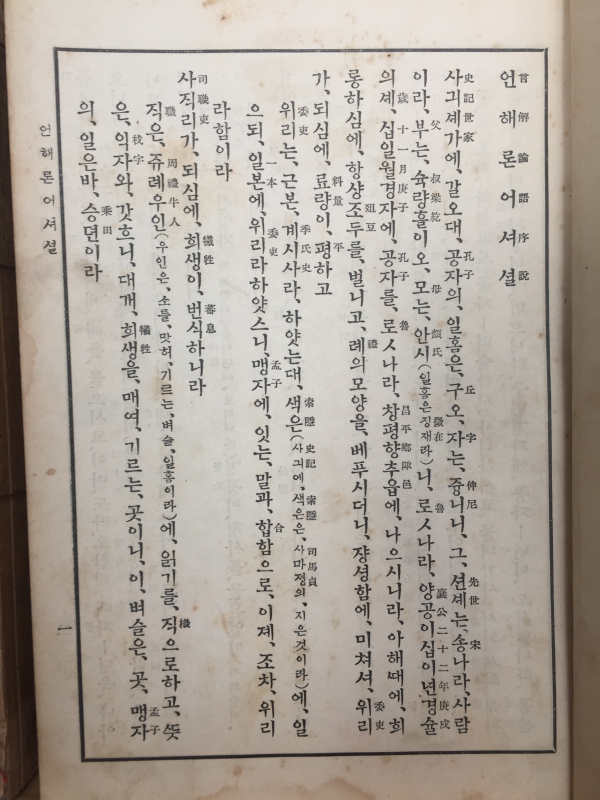 言解論語序說
언해론어셔셜
史記世家 孔子 丘 字 仲尼 先世 宋
사긔셰가에, 갈오대, 공자의, 일홈은, 구오, 자는, 즁니니, 그, 션셰는, 송나라, 사람
父 叔梁紇 母 顔氏 徵在 魯 襄公二十二年庚戌
이라, 부는, 슉량흘이오, 모는, 안시(일홈은징재라)니, 로ㅅ나라, 양공이십이년경슐
歲十一月庚子 孔子 魯 昌平鄕陬邑
의셰, 십일월경자에, 공자를, 로ㅅ나라, 창평향추읍에, 나으시니라, 아해때에, 희
俎豆 禮 委吏
롱하심에, 항샹조두를, 벌니고, 례의모양을, 베푸시더니, 쟝셩함에, 미쳐셔, 위리
料量 平
가, 되심에, 료량이, 평하고
委吏 季氏史 索隱 史記 索隱 司馬貞
위리는, 근본, 계시사라, 하얏는대, 색은(사긔에, 색은은, 사마졍의, 지은것이라)에, 일
一本 委吏 孟子 合
으되, 일본에, 위리라하얏스니, 맹자에, 잇는, 말과, 합함으로, 이졔, 조차, 위리
라함이라
司職吏 犧牲 蕃息
사직리가, 되심에, 희생이, 번식하니라
職 周禮牛人 樴
직은, 쥬례우인(우인은, 소를, 맛허, 기르는, 벼슬, 일홈이라)에, 읽기를, 직으로하고, 뜻
杙字 犧牲 孟子
은, 익자와, 갓흐니, 대개, 희생을, 매여, 기르는, 곳이니, 이, 벼슬은, 곳, 맹자
乘田
의, 일은바, 승뎐이라
언해론어셔셜
一